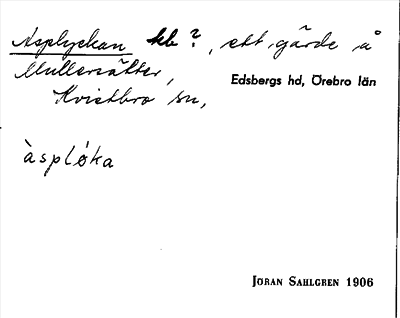 Asplyckan kb ?, ett gärde å
Mullersätter,
Edsbergs hd, Örebro län
Kvistbro sn,
àspløka
JÖRAN SAHLGREN 1906